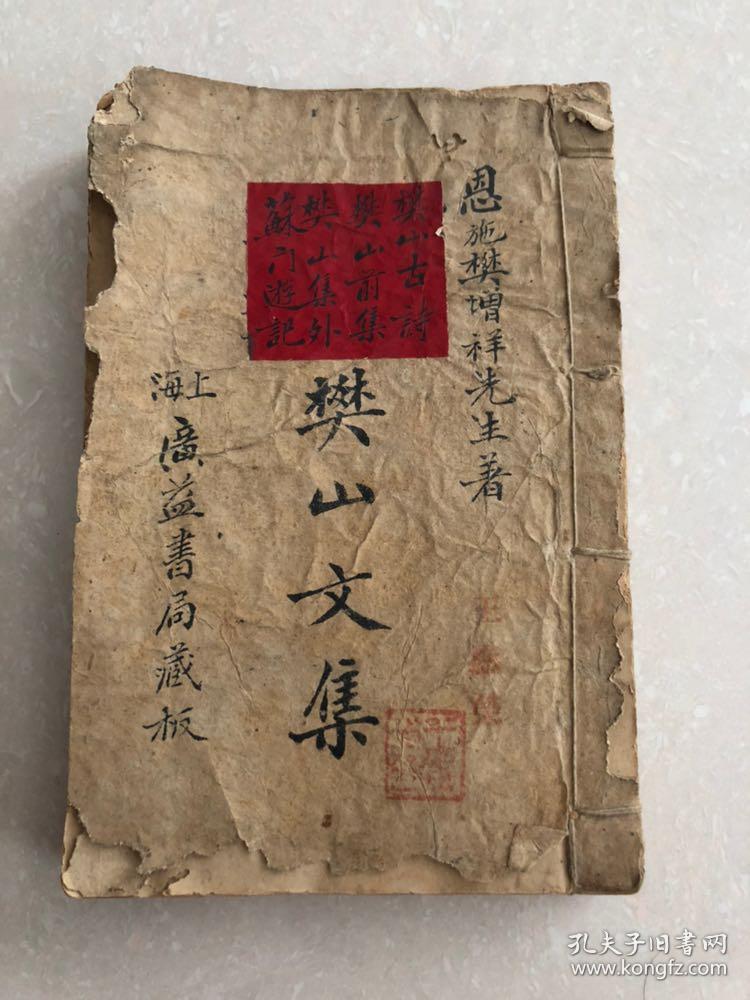 恩施樊增祥先生著
樊山古詩
樊山前集
樊山集外
蘇门遊記
樊山文集
上海
廣益書局藏板
孔夫子旧書网
www.kongfz.com